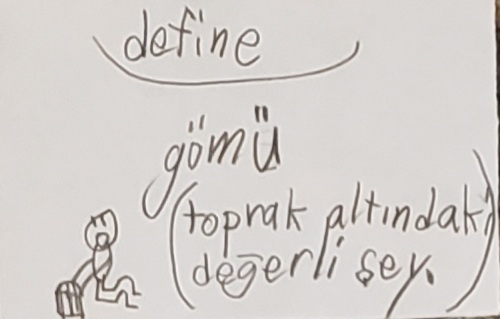 define
gömü
(toprak altındaki)
değerli şey.